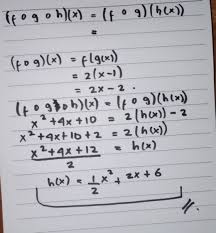 (f o g o h)(x) = (f o g)(h(x))
=
(f o g)(x) = f(g(x))
= 2(x-1)
= 2x - 2.
(f o g o h)(x) = (f o g)(h(x))
x² + 4x + 10 = 2(h(x)) - 2
x² + 4x + 10 + 2 = 2(h(x))
x² + 4x + 12 = h(x)
2
h(x) = 1/2 x² + 2x + 6